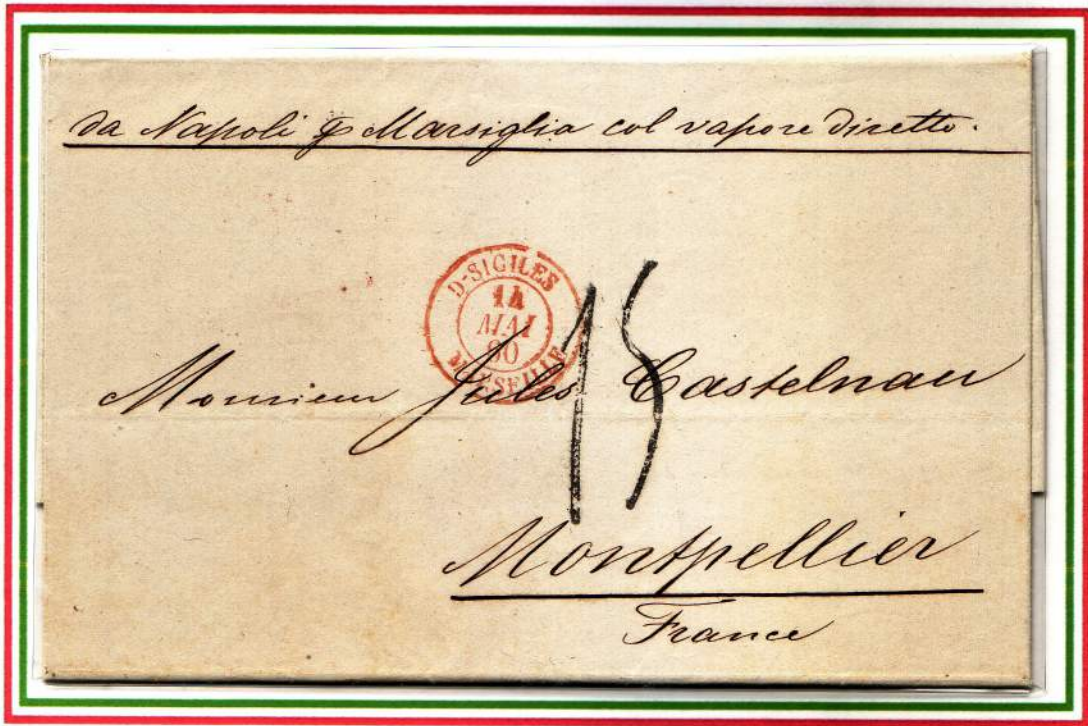 da Napoli p Marsiglia col vapore diretto.
D-SICILES
14
MAI
60
MARSEILLE
15
Monsieur Jules Castelnau
Montpellier
France